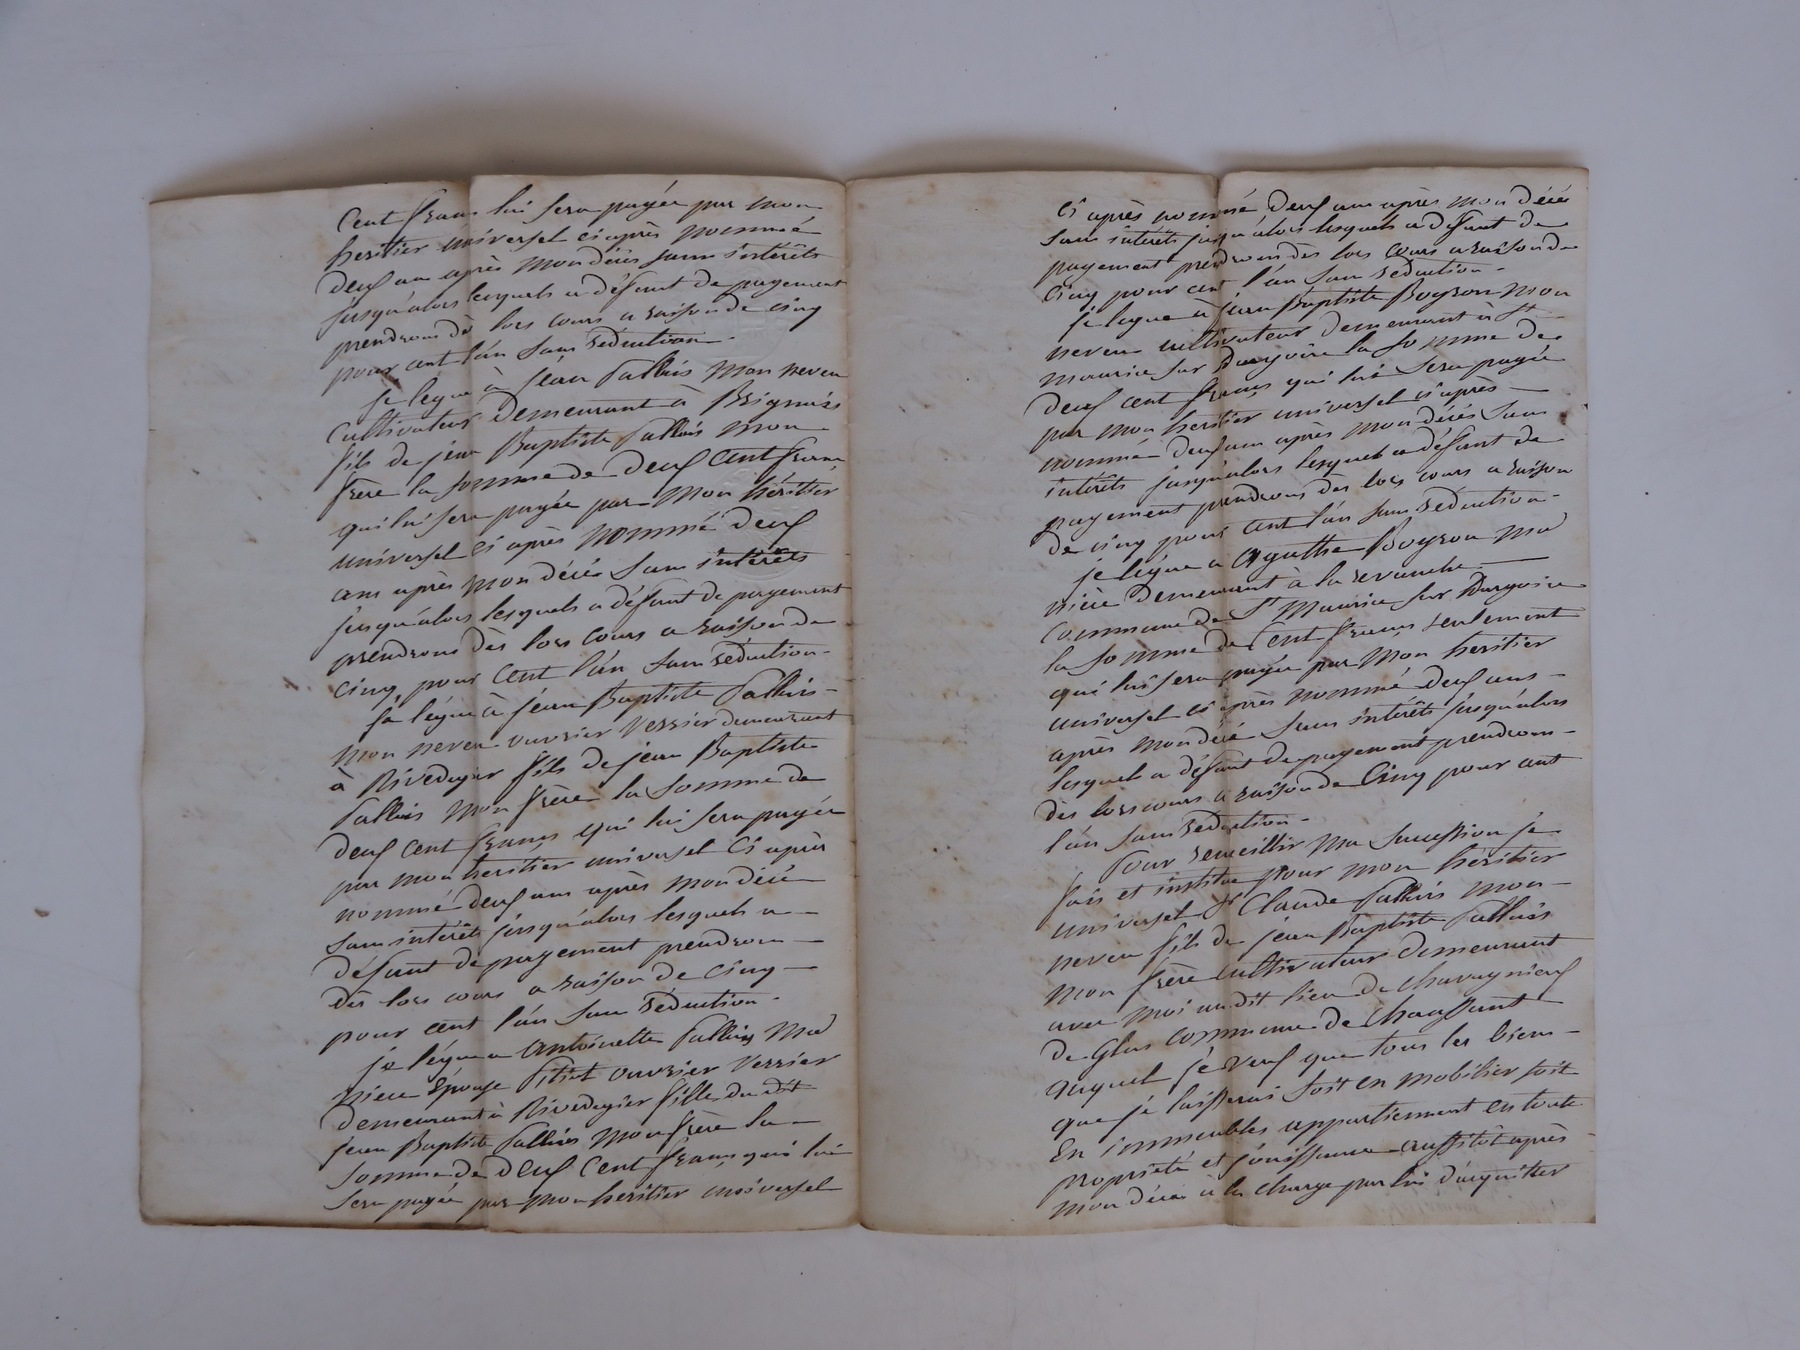 Cent francs lui sera payée par mon
heritier universel ci après nommé
deux an après mon décès sans intérêts
jusqu'alors lesquels a défaut de payement
prendrons dès lors cours a raison de cinq
pour cent l'an sans réduction.
je legue à jean Pallias mon neveu
Cultivateur demeurant à Brignais
fils de jean Baptiste Pallias mon
frère la somme de deux cent francs
qui lui sera payée par mon héritier
universel ci après nommé deux
ans après mon décès sans intérêts
jusqu'alors lesquels a défaut de payement
prendrons dès lors cours a raison de
cinq pour cent l'an sans réduction.
je légue à jean Baptiste Pallias
mon neveu ouvrier verrier demeurant
à Rivedegier fils de jean Baptiste
Pallias mon frère la somme de
deux cent francs qui lui sera payée
par mon heritier universel ci après
nommé deux ans après mon décès
sans intérêts jusqu'alors lesquels a
défaut de payement prendrons
dès lors cours a raison de cinq
pour cent l'an sans réduction.
je légue a Antoinette Pallias ma
nièce épouse Pitiot ouvrier verrier
demeurant à Rivedegier fille du dit
jean Baptiste Pallias mon frère la
somme de deux cent francs qui lui
sera payée par mon heritier universel
ci après nommé deux ans après mon décès
sans intérêts jusqu'alors lesquels a défaut de
payement prendrons dès lors cours a raison de
cinq pour cent l'an sans réduction.
je legue à jean Baptiste Boyron mon
neveu cultivateur demeurant à St
maurice sur Dargoire la somme de
deux cent francs qui lui sera payée
par mon heritier universel ci après
nommé deux ans après mon décès sans
intérêts jusqu'alors lesquels a défaut de
payement prendrons dès lors cours a raison
de cinq pour cent l'an sans réduction.
je légue a Agathe Boyron ma
nièce demeurant à la revanche
commune de St Maurice sur Dargoire
la somme de Cent francs seulement
qui lui sera payée par mon heritier
universel ci après nommé deux ans
après mon décè sans intérêts jusqu'alors
lesquels a défaut de payement prendrons
dès lors cours a raison de Cinq pour cent
l'an sans réduction.
Pour recueillir ma succession je
fais et institue pour mon héritier
universel Claude Pallias mon
neveu fils de jean Baptiste Pallias
mon frère cultivateur demeurant
avec moi au dit lieu de
de commune de Chaussant
auquel je veux que tous les biens
que je laisserai soit en mobilier soit
En immeubles appartiennent en toute
propriété et jouissance aussitôt après
mon décès à la charge par lui d'acquitter